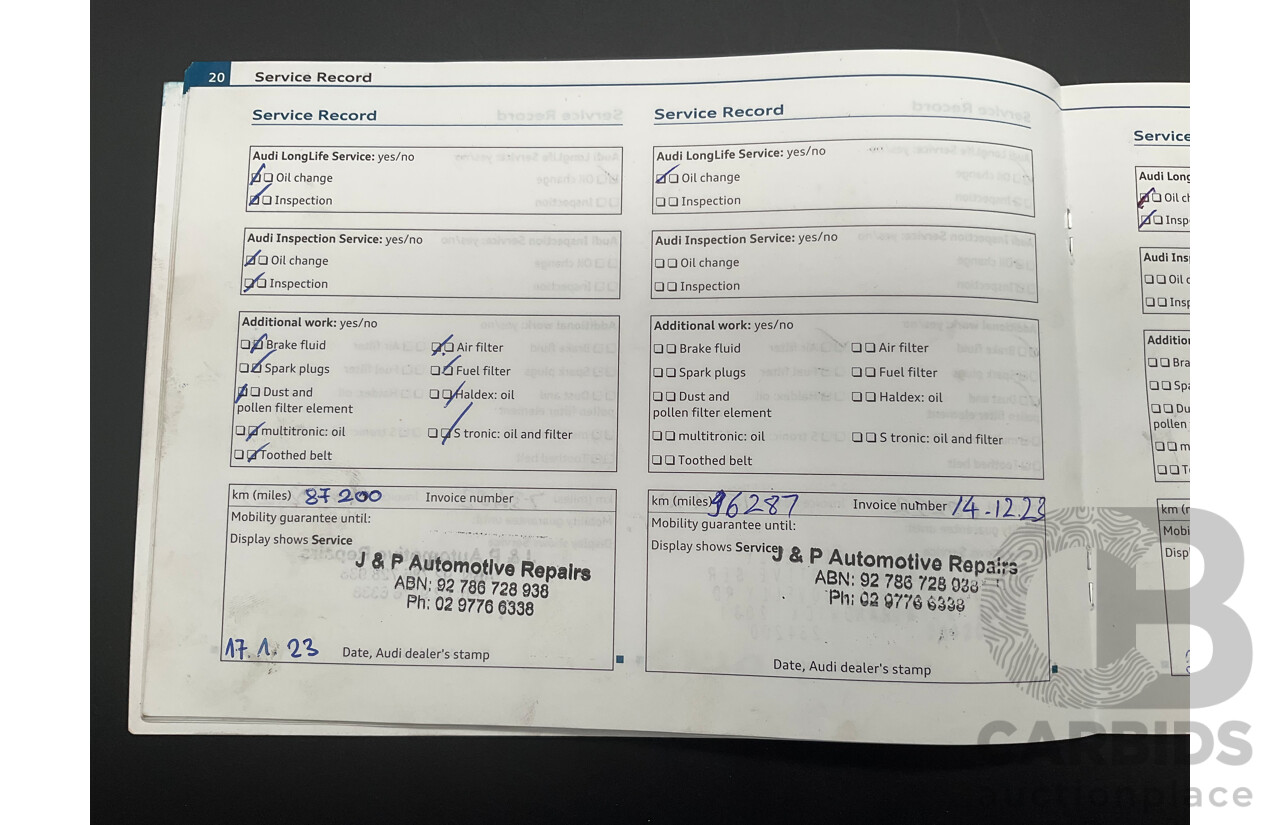 20 Service Record
Service Record
Audi LongLife Service: yes/no
Oil change
Inspection
Audi Inspection Service: yes/no
Oil change
Inspection
Additional work: yes/no
Brake fluid
Air filter
Spark plugs
Fuel filter
Dust and
pollen filter element
Haldex: oil
multitronic: oil
S tronic: oil and filter
Toothed belt
km (miles) 87 200 Invoice number
Mobility guarantee until:
Display shows Service
J & P Automotive Repairs
ABN: 92 786 728 938
Ph: 02 9776 6338
17.1.23 Date, Audi dealer's stamp
Service Record
Audi LongLife Service: yes/no
Oil change
Inspection
Audi Inspection Service: yes/no
Oil change
Inspection
Additional work: yes/no
Brake fluid
Air filter
Spark plugs
Fuel filter
Dust and
pollen filter element
Haldex: oil
multitronic: oil
S tronic: oil and filter
Toothed belt
km (miles) 96287 Invoice number 14.12.23
Mobility guarantee until:
Display shows Service
J & P Automotive Repairs
ABN: 92 786 728 938
Ph: 02 9776 6338
Date, Audi dealer's stamp
Service
Audi
Oil
Audi
Oil
pollen
CARBIDS
auctionplace